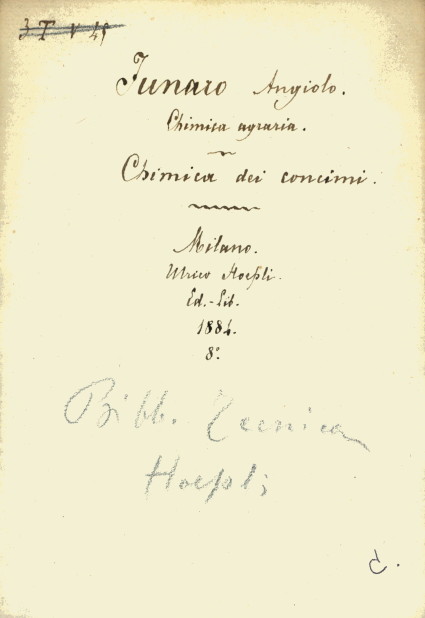 3 T V 45
Funaro Angiolo.
Chimica agraria.
Chimica dei concimi.
Milano.
Ulrico Hoepli.
Ed.-Lib.
1884.
8°.
Bibb. Tecnica
Hoepli
C.